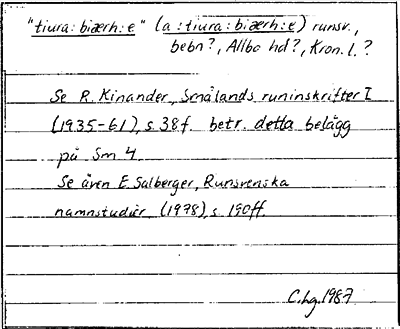 "tiura:biærh:e" (a:tiura:biærh:e) runsv.,
bebn?, Allbo hd?, Kron. l.?
Se R. Kinander, Smålands runinskrifter I
(1935-61), s. 38f. betr. detta belägg
på Sm 4.
Se även E. Salberger, Runsvenska
namnstudier (1978), s. 190ff.
C.Lg. 1987